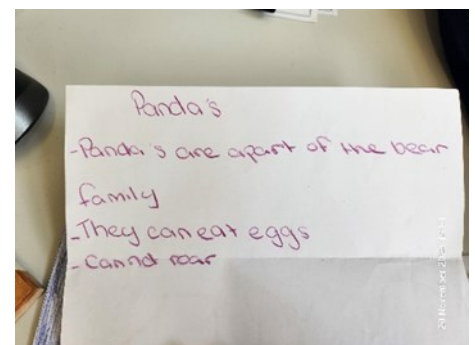 Panda's
-Panda's are apart of the bear
family
-They can eat eggs
-Cannot roar